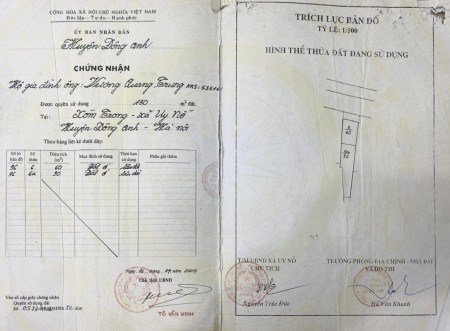 CỘNG HÒA XÃ HỘI CHỦ NGHĨA VIỆT NAM
Độc lập - Tự do - Hạnh phúc
ỦY BAN NHÂN DÂN
Huyện Đông Anh
CHỨNG NHẬN
Hộ gia đình ông: Vương Quang Trung
Được quyền sử dụng 150 m² đất
Tại: Xóm Trong - xã Uy Nỗ
Huyện Đông Anh - Hà nội
Theo bảng liệt kê dưới đây:
Số tờ bản đồ
Số thửa
Diện tích (m²)
Mục đích sử dụng
Thời hạn sử dụng
Phần ghi thêm
60 Đất ở
90 Đất ở
TM/UBND
TÔ VĂN MINH
Vào sổ cấp giấy chứng nhận
Quyền sử dụng đất
TRÍCH LỤC BẢN ĐỒ
TỶ LỆ: 1/500
HÌNH THỂ THỬA ĐẤT ĐANG SỬ DỤNG
T/M UBND XÃ UY NỖ
CHỦ TỊCH
Nguyễn Trúc Đúc
TRƯỞNG PHÒNG ĐỊA CHÍNH - NHÀ ĐẤT
VÀ ĐÔ THỊ
Hà Văn Khanh